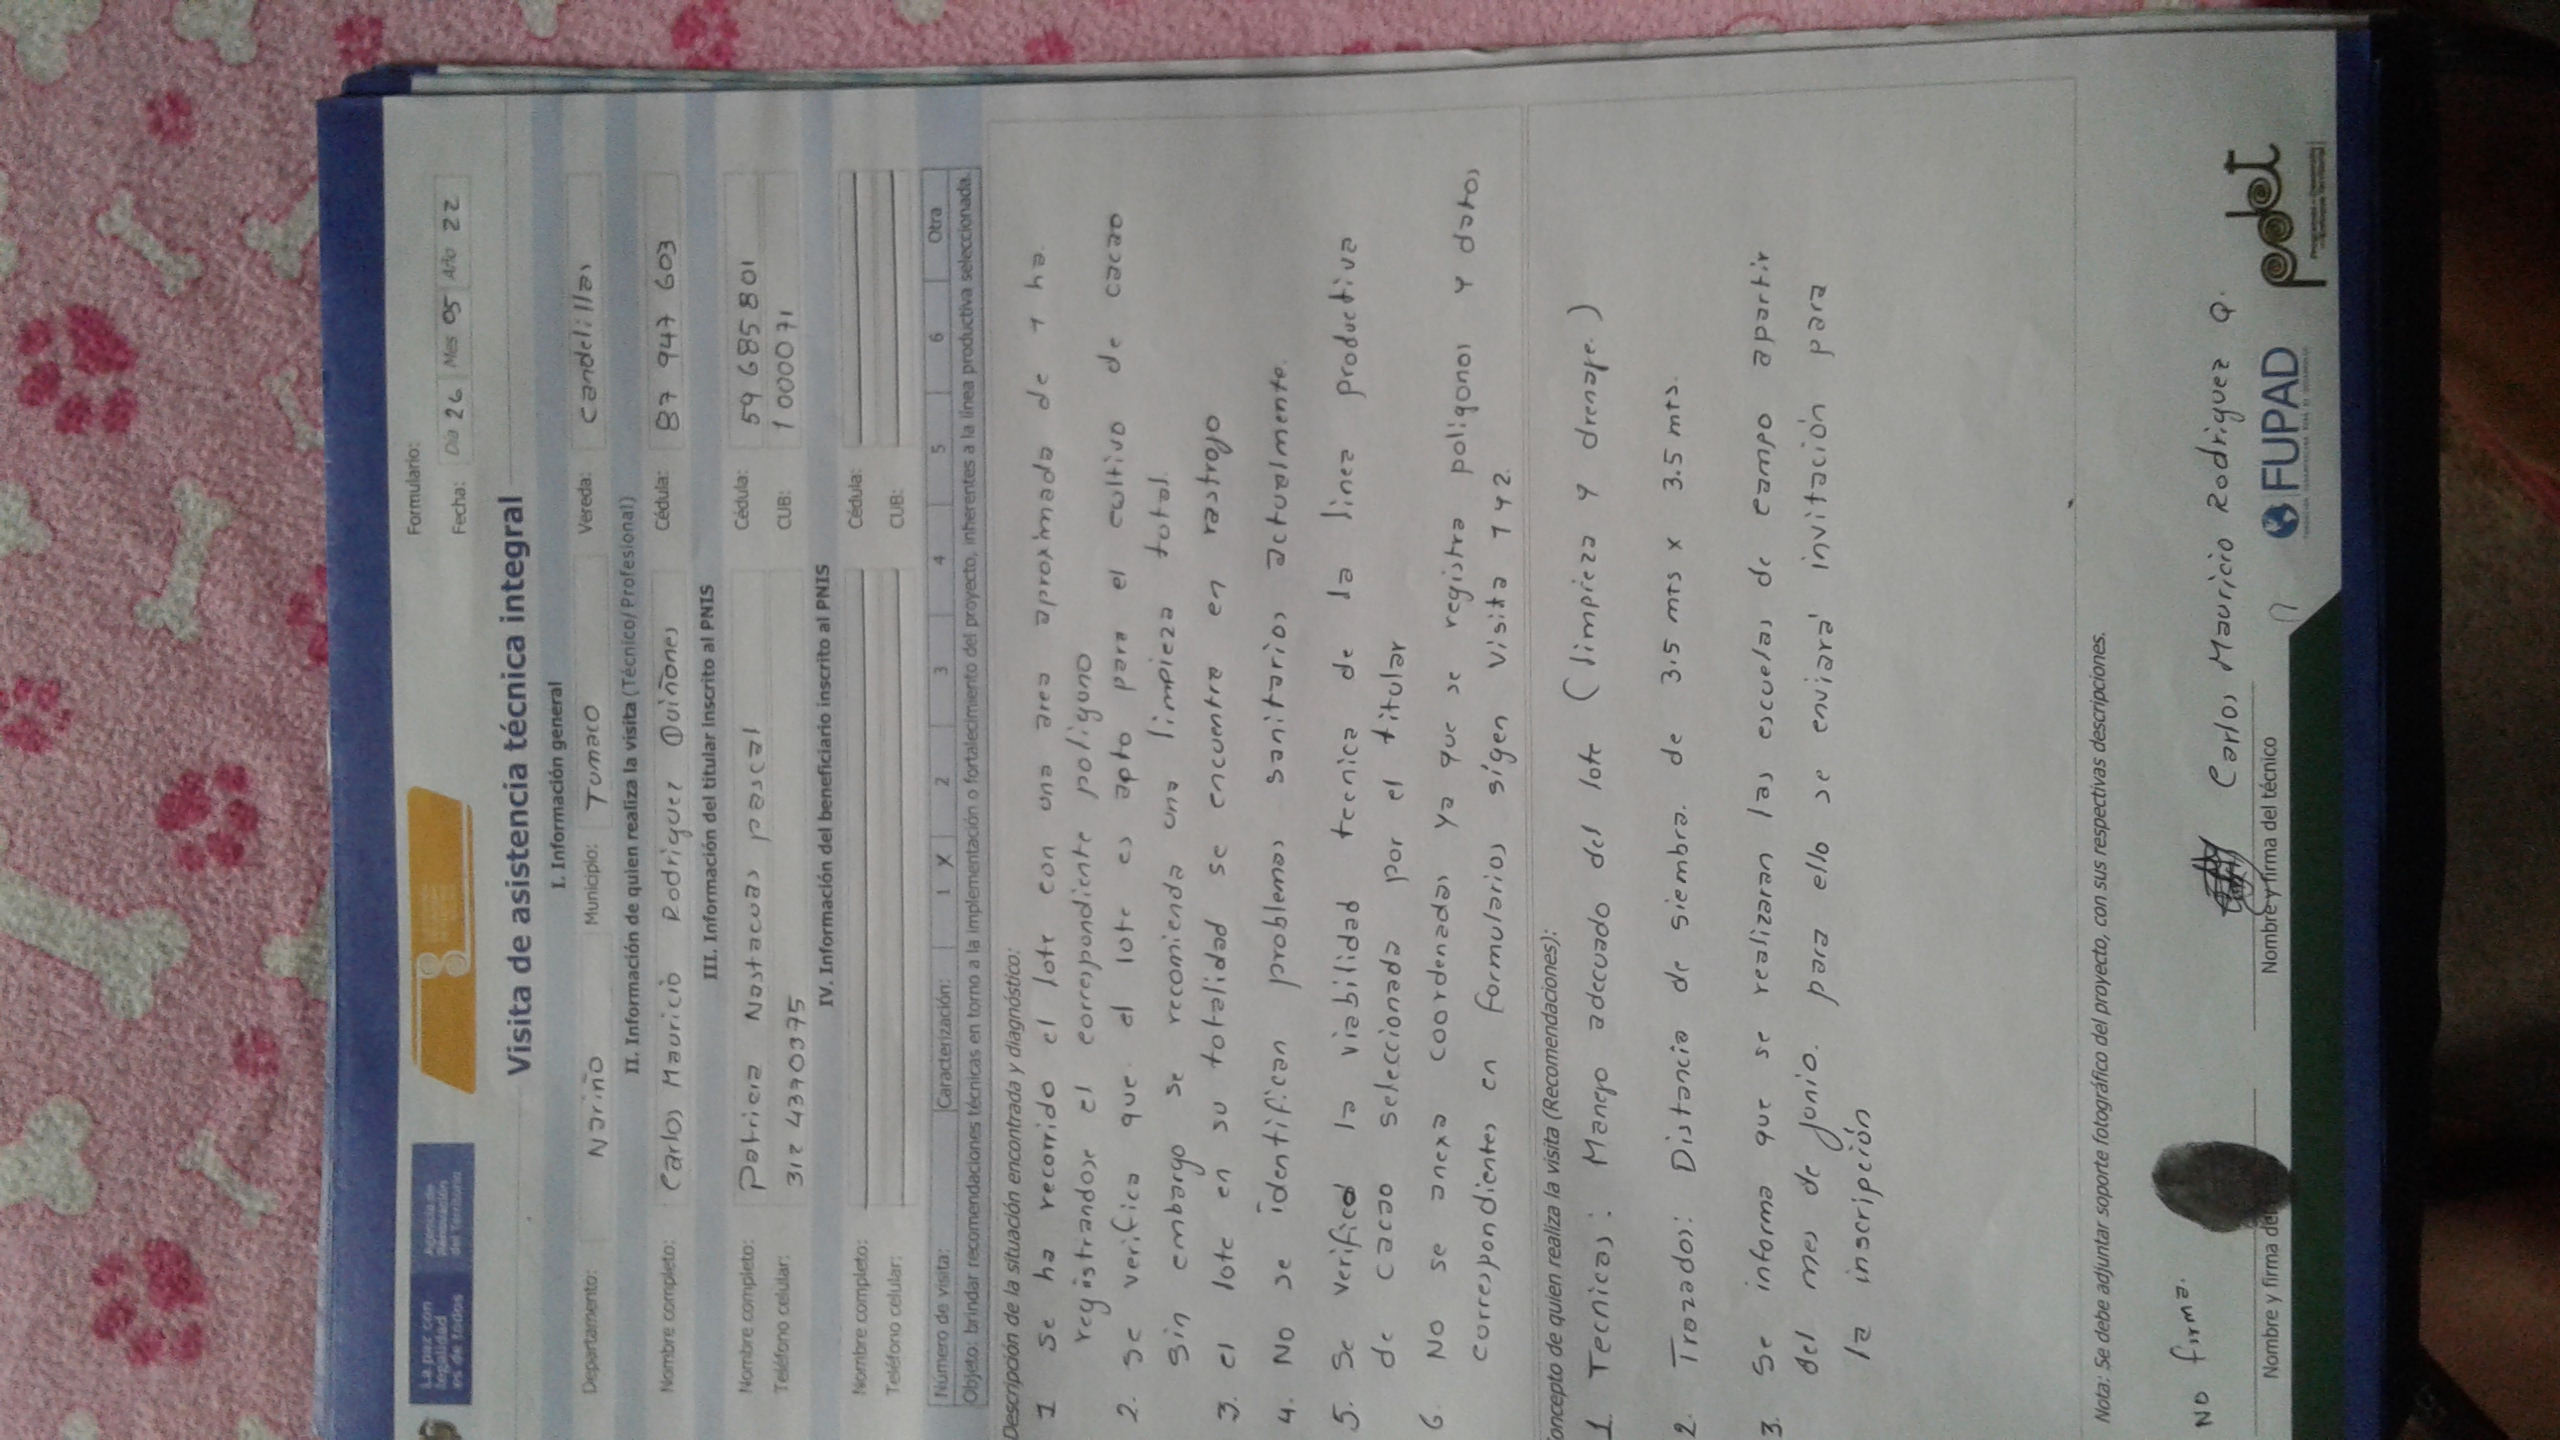 La paz con
legalidad
es de todos
Agencia de
Renovación
del Territorio
Formulario:
Fecha: Día 26 Mes 05 Año 22
Visita de asistencia técnica integral
I. Información general
Departamento: Nariño Municipio: Tumaco Vereda: Candelillas
II. Información de quien realiza la visita (Técnico/Profesional)
Nombre completo: Carlos Mauricio Rodriguez Quiñones Cédula: 87 947 603
III. Información del titular inscrito al PNIS
Nombre completo: Patricia Nastacuas pascal Cédula: 59 685 801
Teléfono celular: 312 4390375 CUB: 1000071
IV. Información del beneficiario inscrito al PNIS
Nombre completo: Cédula:
Teléfono celular: CUB:
Número de visita: Caracterización: 1 X 2 3 4 5 6 Otra
Objeto: brindar recomendaciones técnicas en torno a la implementación o fortalecimiento del proyecto, inherentes a la línea productiva seleccionada.
Descripción de la situación encontrada y diagnóstico:
1 Se ha recorrido el lote con una area aproximada de 1 ha.
registrandose el correspondiente poligono
2. se verifica que el lote es apto para el cultivo de cacao
sin embargo se recomienda una limpieza total.
3. el lote en su totalidad se encuentra en rastrojo
4. No se identifican problemas sanitarios actualmente.
5. Se verificó la viabilidad tecnica de la linea productiva
de cacao seleccionada por el titular
6. No se anexa coordenadas ya que se registra poligonos y datos
correspondientes en formularios sigen visita 1 y 2.
oncepto de quien realiza la visita (Recomendaciones):
1 Tecnicas: Manejo adecuado del lote (limpieza y drenaje.)
2. Trazados: Distancia de siembra. de 3.5 mts x 3.5 mts.
3. Se informa que se realizaran las escuelas de campo apartir
del mes de junio. para ello se enviará invitación para
la inscripción
Nota: Se debe adjuntar soporte fotográfico del proyecto, con sus respectivas descripciones.
No firma.
Carlos Mauricio Rodriguez Q.
Nombre y firma del
Nombre y firma del técnico
FUPAD
pdet